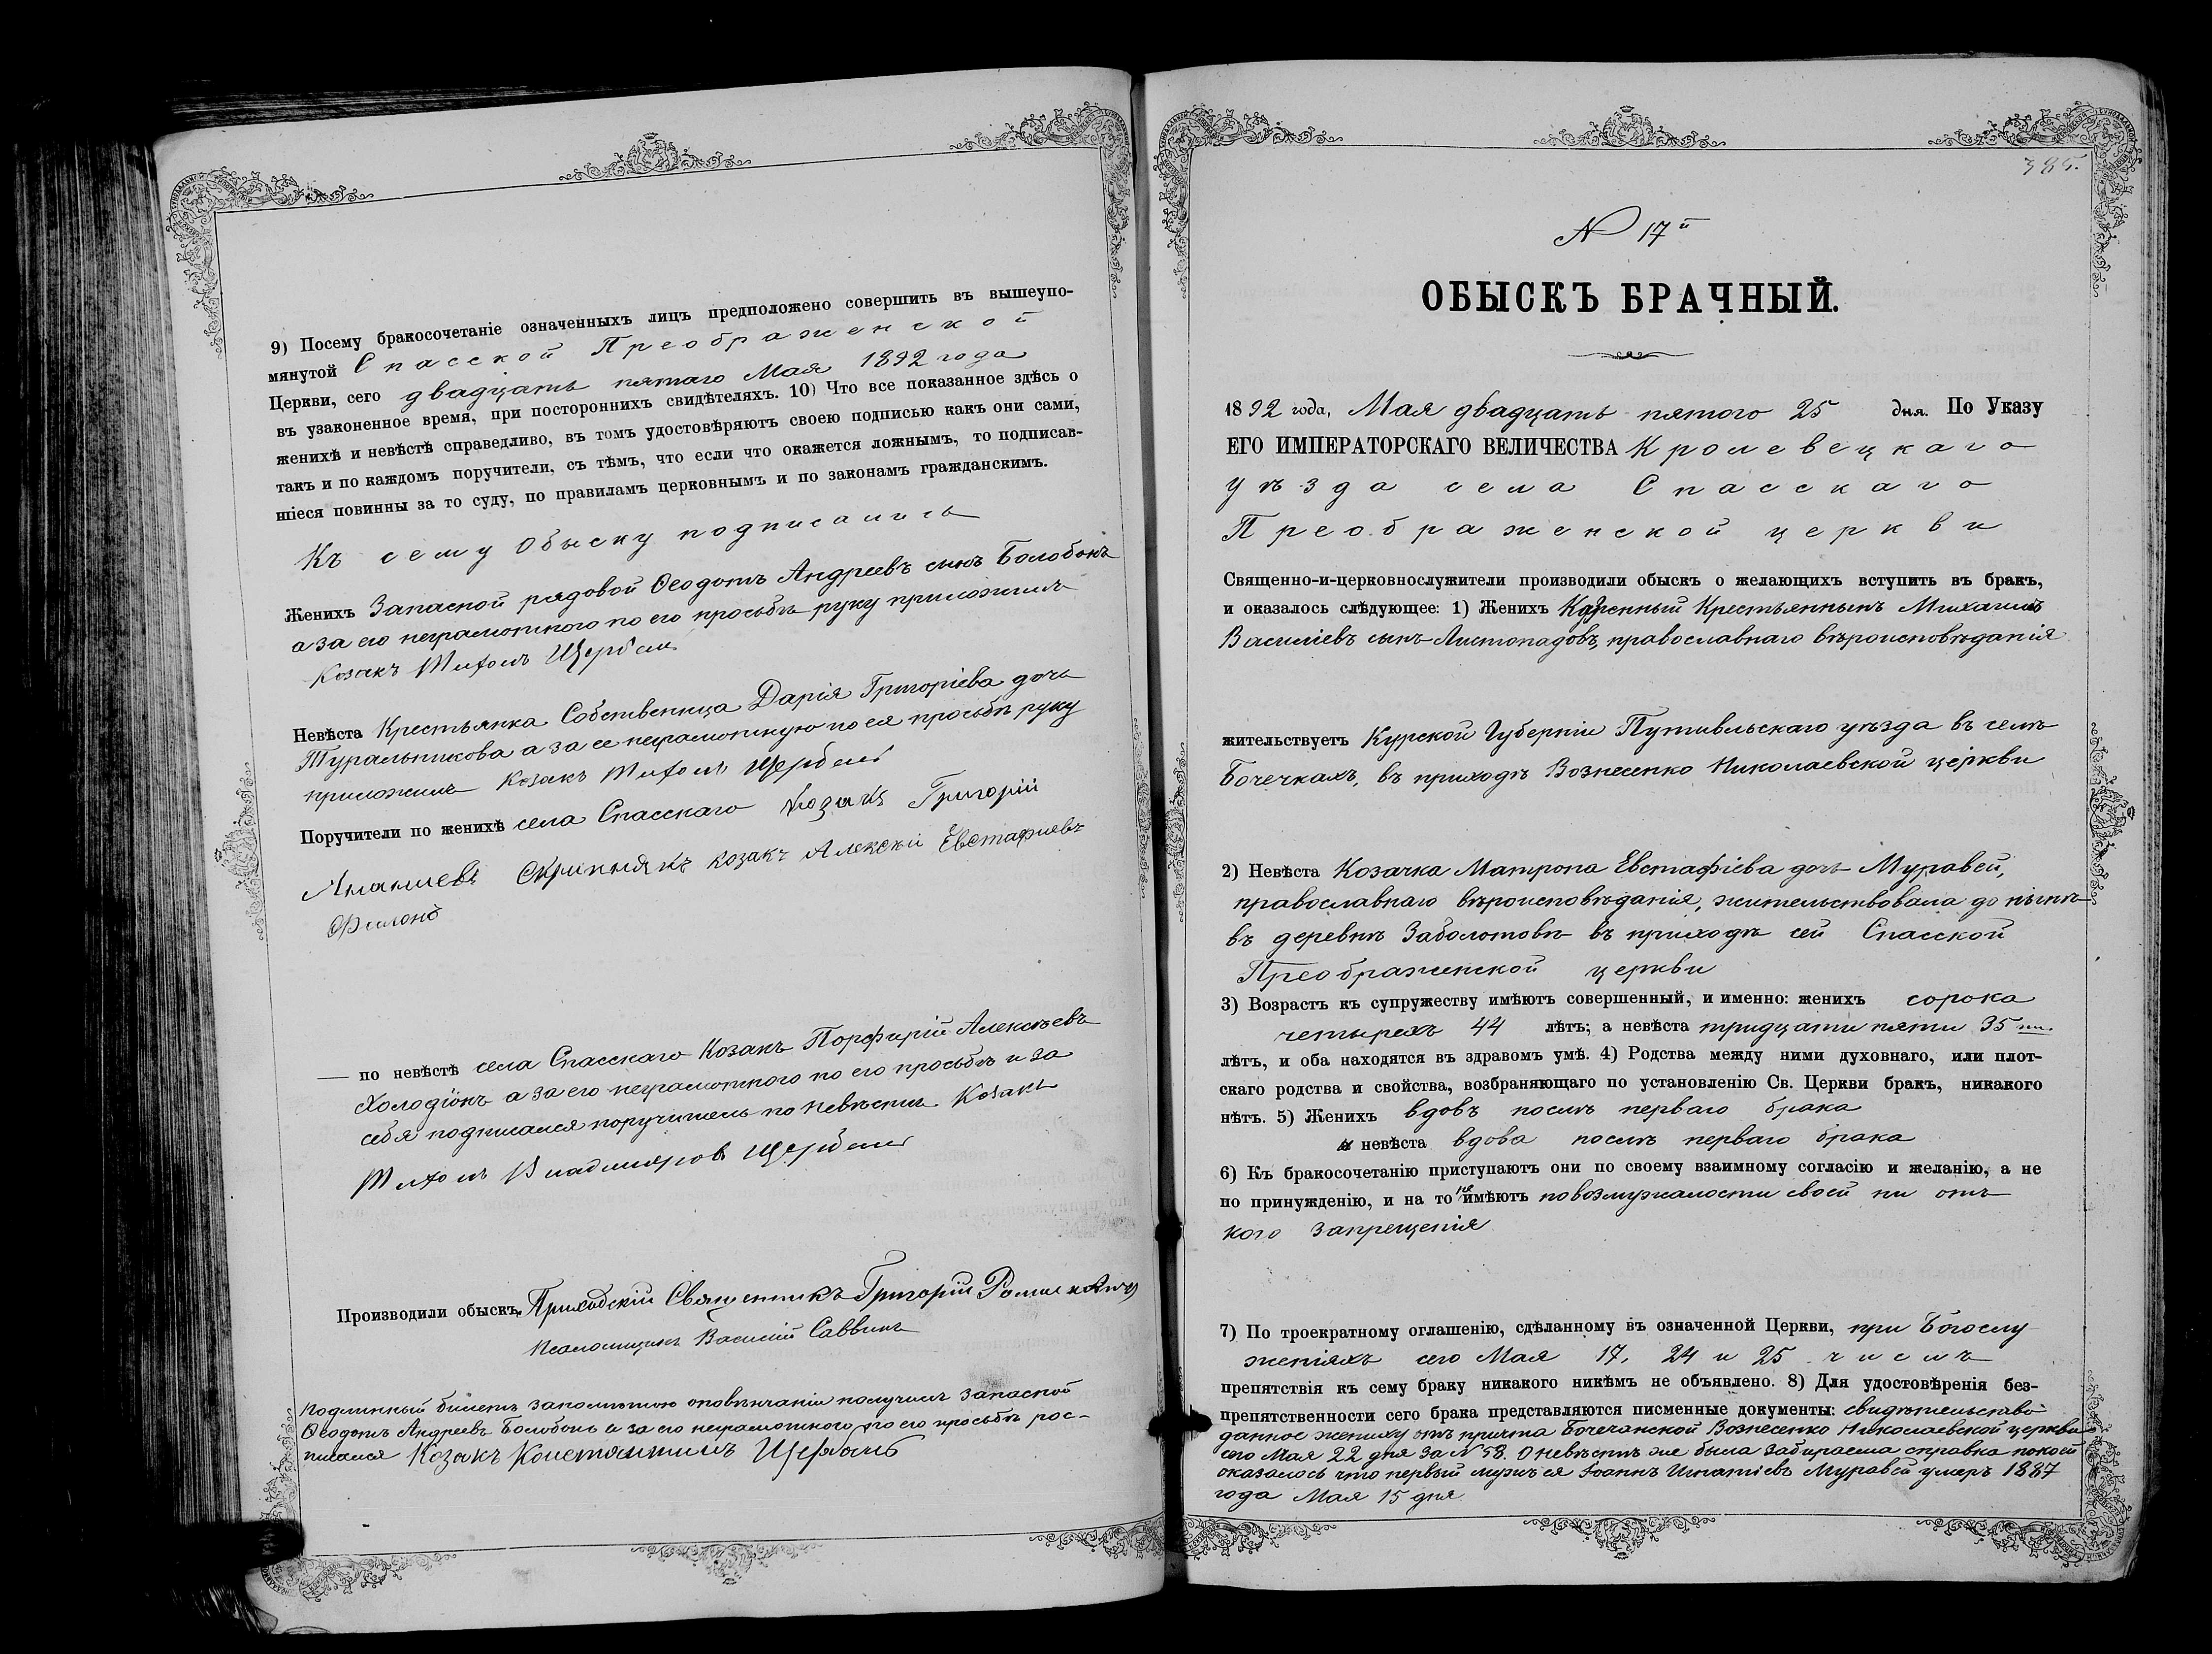 9) Посему бракосочетаніе означенныхъ лицъ предположено совершить въ вышеупо-
мянутой Спасской Преображенской
Церкви, сего двадцать пятаго Мая 1892 года
въ узаконенное время, при постороннихъ свидѣтеляхъ. 10) Что все показанное здѣсь о
женихѣ и невѣстѣ справедливо, въ томъ удостовѣряютъ своею подписью какъ они сами,
такъ и по каждомъ поручители, съ тѣмъ, что если что окажется ложнымъ, то подписав-
шіеся повинны за то суду, по правиламъ церковнымъ и по законамъ гражданскимъ.
Къ сему Обыску подписались
Женихъ Запасной рядовой Ѳеодотъ Андреевъ сынъ Болобонъ
а за его неграмотного по его просьбѣ руку приложилъ
Козакъ Тихонъ Щербань
Невѣста Крестьянка Собственница Дарія Григоріева дочь
Туральникова а за ее неграмотную по ея просьбѣ руку
приложилъ Козакъ Тихонъ Щербань
Поручители по женихѣ села Спасскаго Козакъ Григорій
Ананиевъ Скрипнякъ козакъ Алексій Евстафиевъ
Филонъ
— по невѣстѣ села Спасскаго Козакъ Порфирій Алексѣевъ
Холодіонъ а за его неграмотного по его просьбѣ и за
себя подписался поручитель по невѣстѣ Козакъ
Тихонъ Владимировъ Щербань
Производили обыскъ Приходскій Священникъ Григорій
Псаломщикъ Василій Саввинъ
Подлинный билетъ запомѣтою оповѣнчаніи получилъ запасной
Ѳеодотъ Андреевъ Болобонъ а за его неграмотного по его просьбѣ рос-
писался Козакъ Константинъ Щербань
385.
N 17й
ОБЫСКЪ БРАЧНЫЙ.
1892 года, Мая двадцать пятого 25 дня. По Указу
ЕГО ИМПЕРАТОРСКАГО ВЕЛИЧЕСТВА Кролевецкаго
уѣзда села Спасскаго
Преображенской церкви
Священно-и-церковнослужители производили обыскъ о желающихъ вступить въ бракъ,
и оказалось слѣдующее: 1) Женихъ Крестьянинъ Михаилъ
Василіевъ сынъ Листопадовъ, православнаго вѣроисповѣданія
жительствуетъ Курской Губерніи Путивльскаго уѣзда въ селѣ
Бочечкахъ, въ приходѣ Вознесенко Николаевской церкви
2) Невѣста Козачка Матрона Евстафіева дочь Муравей,
православнаго вѣроисповѣданія, жительствовала до нынѣ
въ деревнѣ Заболотовѣ въ приходѣ сей Спасской
Преображенской церкви
3) Возрастъ къ супружеству имѣютъ совершенный, и именно: женихъ сорока
четырехъ 44 лѣтъ; а невѣста тридцати пяти 35
лѣтъ, и оба находятся въ здравомъ умѣ. 4) Родства между ними духовнаго, или плот-
скаго родства и свойства, возбраняющаго по установленію Св. Церкви бракъ, никакого
нѣтъ. 5) Женихъ вдовъ послѣ перваго брака
а невѣста вдова послѣ перваго брака
6) Къ бракосочетанію приступаютъ они по своему взаимному согласію и желанію, а не
по принужденію, и на то не имѣютъ повозмужалости своей ни отъ
кого запрещенія
7) По троекратному оглашенію, сдѣланному въ означенной Церкви, при Богослу
женіяхъ сего Мая 17, 24 и 25 числъ
препятствія къ сему браку никакого никѣмъ не объявлено. 8) Для удостовѣренія без-
препятственности сего брака представляются писменные документы: свидѣтельство
данное жениху отъ причта Бочечанской Вознесенко Николаевской церкви
сего Мая 22 дня за N 58. О невѣстѣ же была забираема справка покоей
оказалось что первый мужъ ея Іоаннъ Игнатіевъ Муравей умеръ 1887
года Мая 15 дня